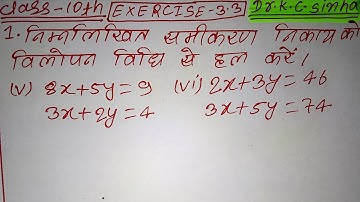 Class-10th EXERCISE-3.3 Dr. K.C. Sinha
1. निम्नलिखित समीकरण निकाय को
विलोपन विधि से हल करें।
(v) 8x+5y=9 (vi) 2x+3y=46
3x+2y=4 3x+5y=74